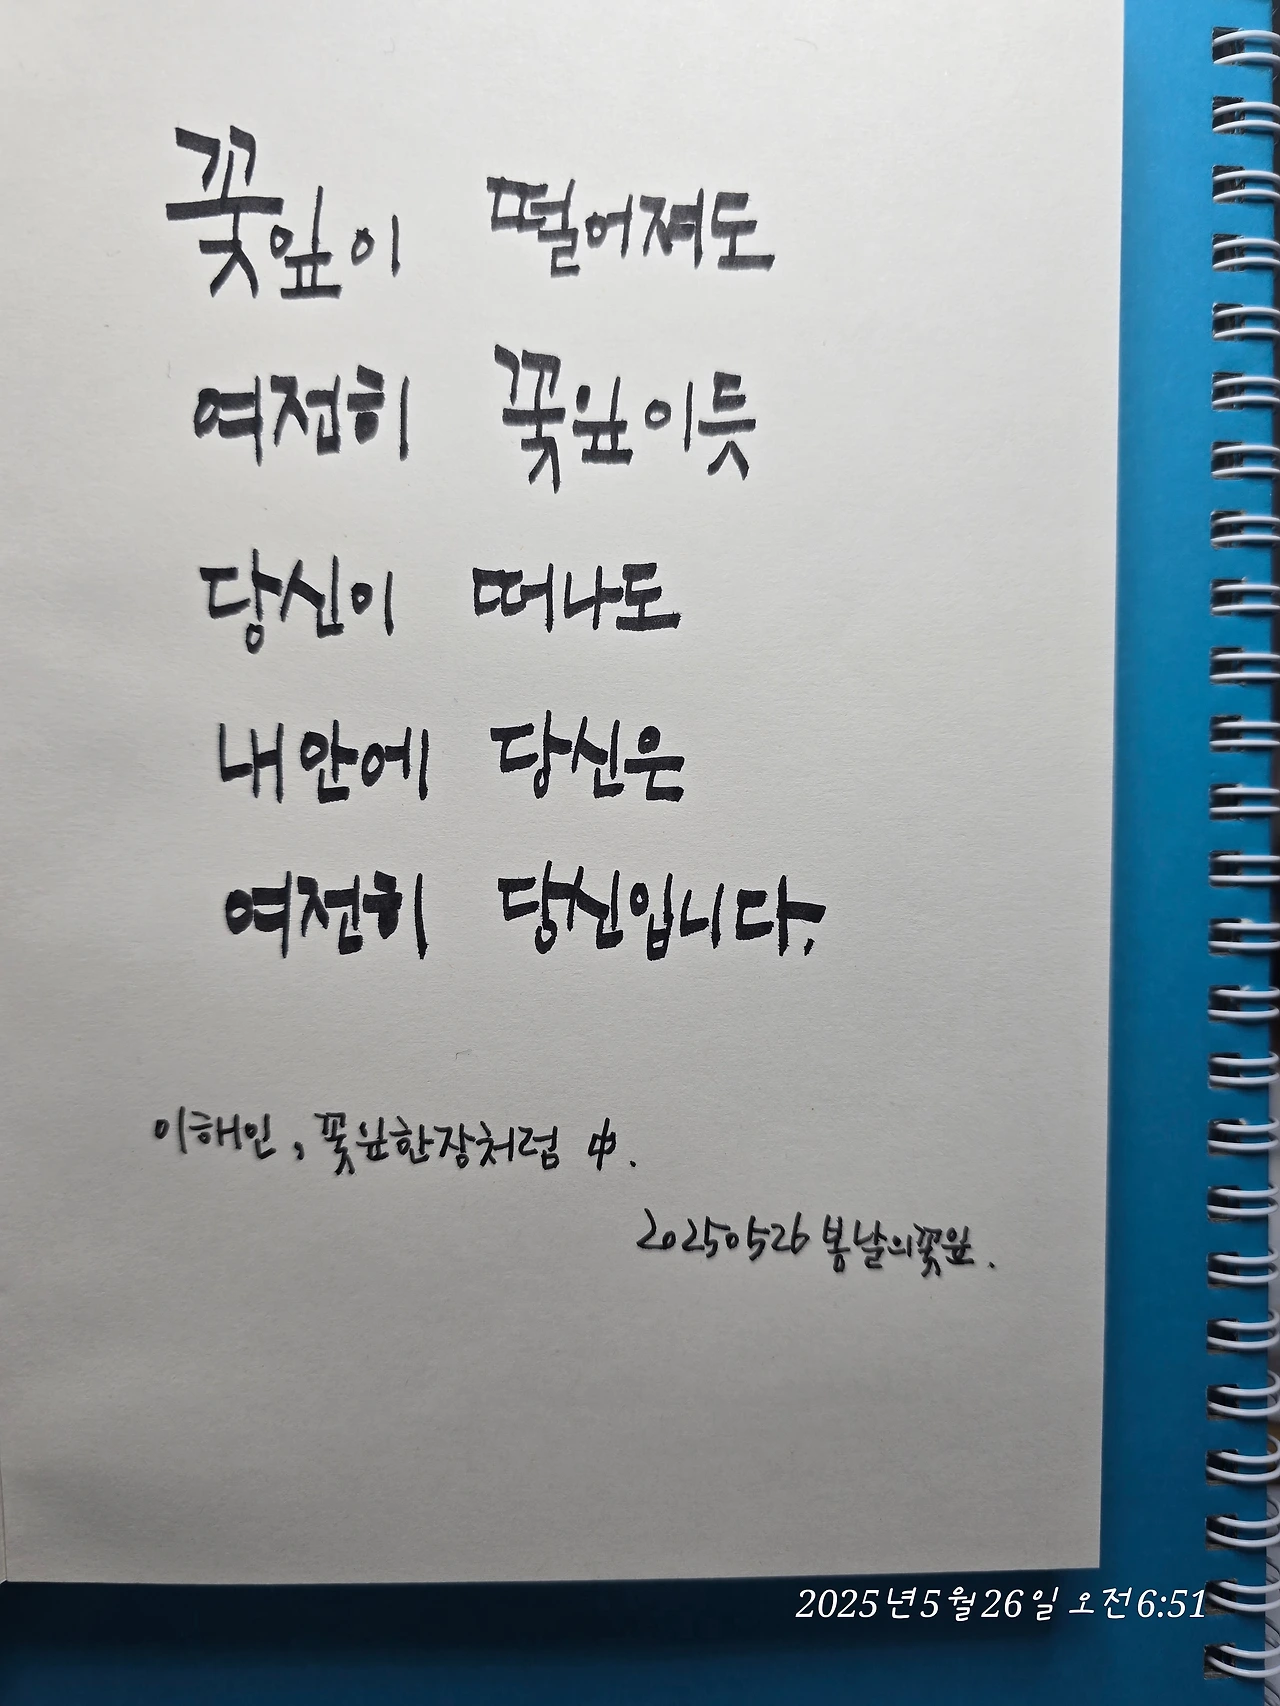 꽃잎이 떨어져도
여전히 꽃잎이듯
당신이 떠나도
내 안에 당신은
여전히 당신입니다.
이해인, 꽃잎한장처럼 中.
20250526 봄날의꽃잎.
2025년 5월 26일 오전 6:51